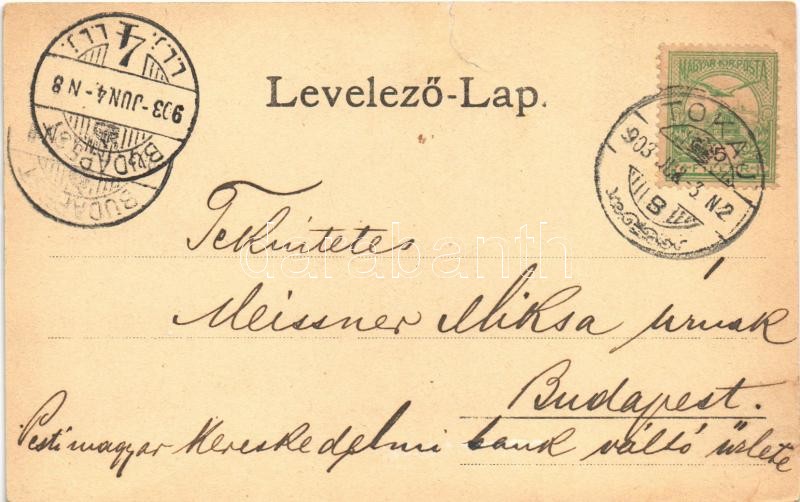 L.L.J. 4 L.L.J.
903 - JUN 4 - N 8
BUDAPEST
BUDAPEST
Levelező-Lap.
MAGYAR KIR. POSTA
5
TOKAJ
903 JUN 3 N2
B
Tekintetes
Meissner Miksa úrnak
Budapest.
Pesti magyar kereskedelmi bank váltó üzlete
darabanth